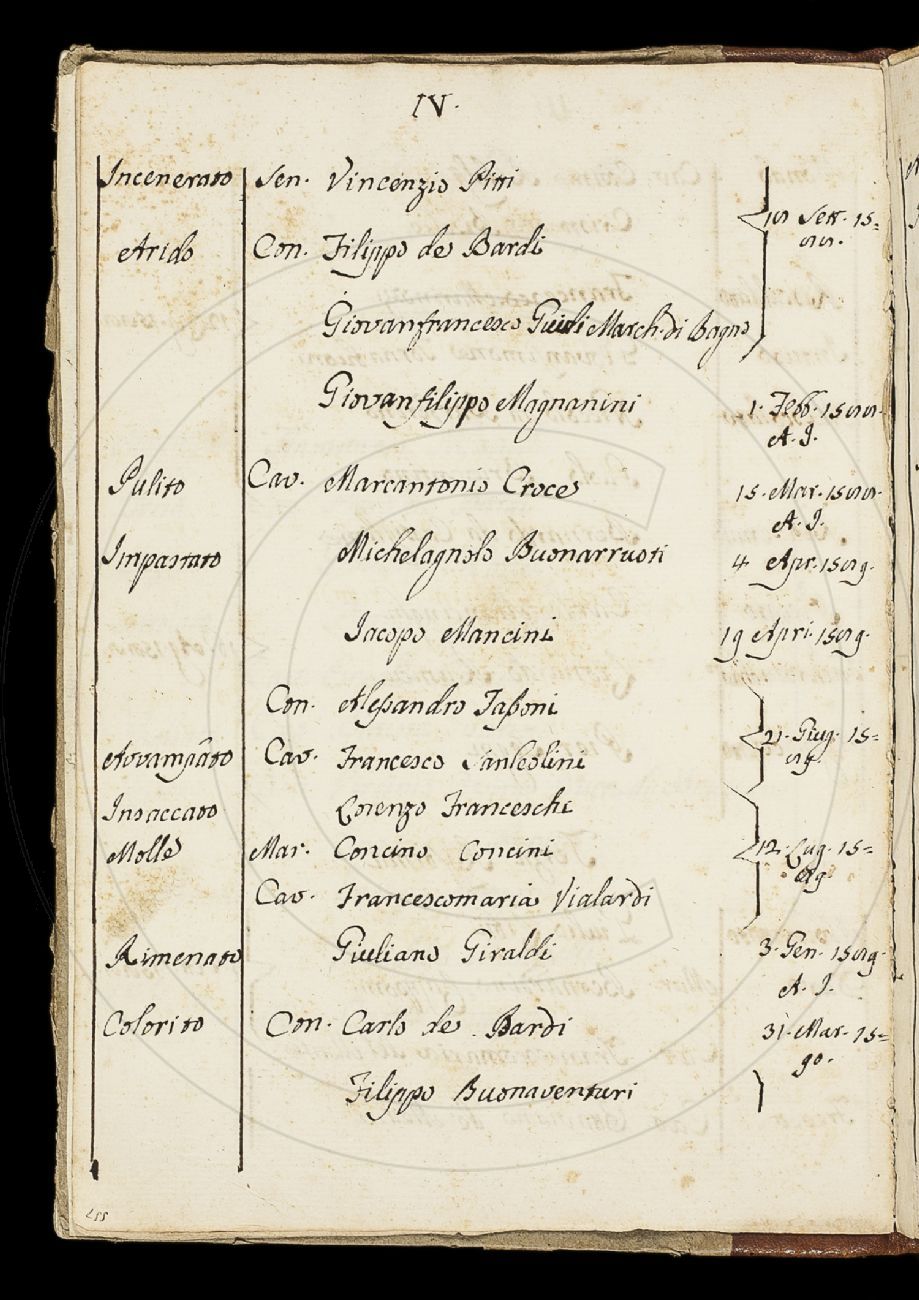 IV.
Incenerato Sen. Vincenzio Pitti
18 Sett. 15=
88.
Arido Con. Filippo de Bardi
Giovanfrancesco Guidi March. di Bagno
Giovanfilippo Magnanini 1. Febb. 1588.
A. I.
Pulito Cav. Marcantonio Croce 15. Mar. 1588.
A. I.
Impastato Michelagnolo Buonarruoti 4 Apr. 1589.
Iacopo Mancini 19 Apri. 1589.
Con. Alessandro Tassoni
21. Giug. 15=
89.
Avvampato Cav. Francesco Sanleolini
Insaccato Lorenzo Franceschi
Molle Mar. Concino Concini 12. Lug. 15=
89.
Cav. Francescomaria Vialardi
Rimenato Giuliano Giraldi 3. Gen. 1589.
A. I.
Colorito Con. Carlo de Bardi 31. Mar. 15=
90.
Filippo Buonaventuri